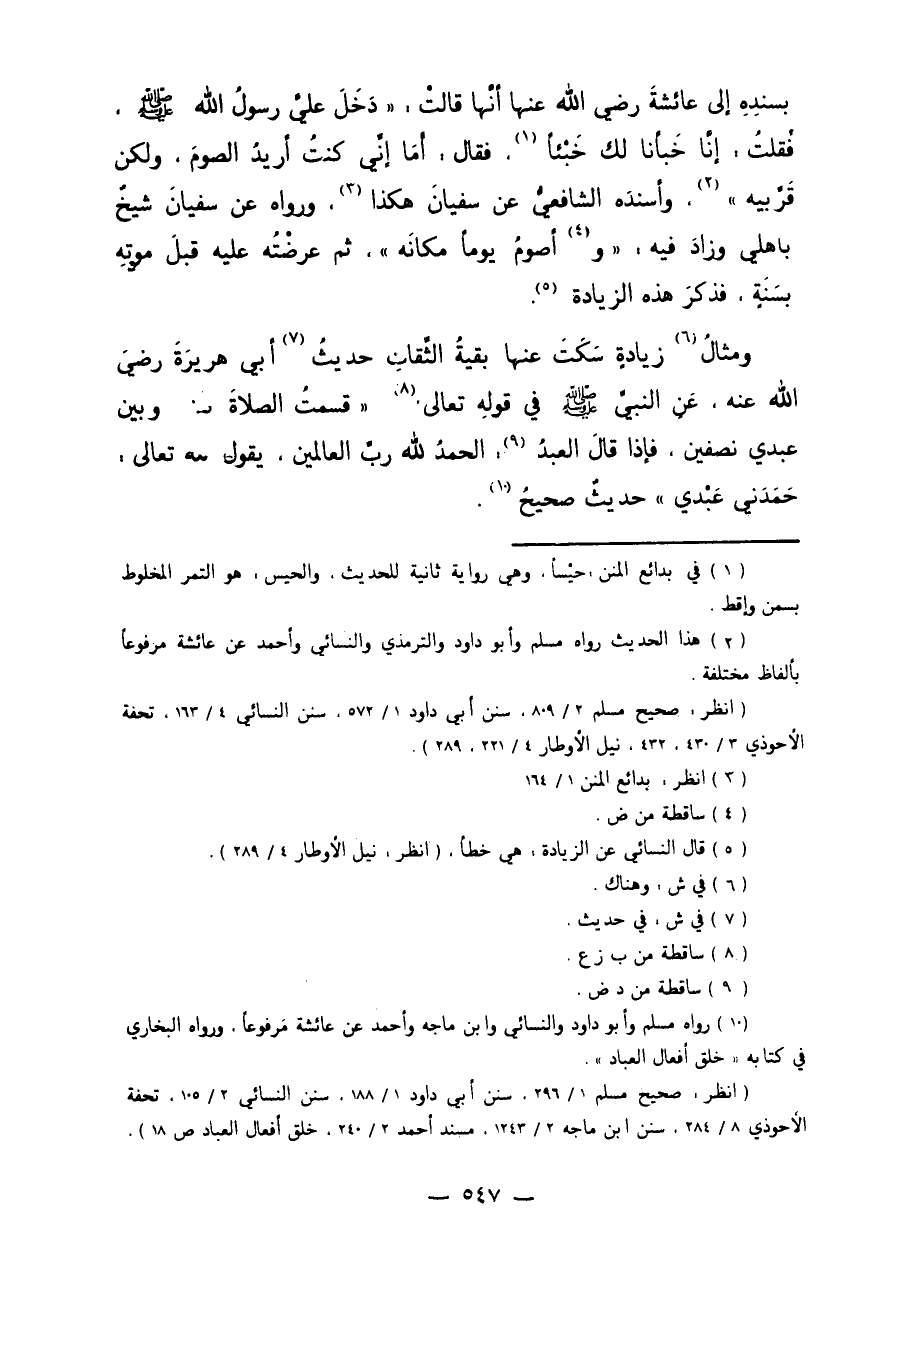 بسندِهِ إلى عائشةَ رضي الله عنها أنَّها قالتْ : « دَخَلَ عليَّ رسولُ الله ﷺ ،
فُقلتُ : إنَّا خَبأنا لك خَبْئاً (١) ، فقال : أمَا إنَّي كنتُ أريدُ الصومَ ، ولكن
قَرَّبيه » (٢) ، وأسندَه الشافعيُّ عن سفيانَ هكذا (٣) ، ورواه عن سفيانَ شيخٌ
باهلي وزادَ فيه : « و (٤) أصومُ يوماً مكانَه » ، ثم عرضْتُه عليه قبلَ موتِهِ
بسَنَةٍ ، فذكرَ هذه الزيادة (٥) .
ومثالُ (٦) زيادةٍ سَكَتَ عنها بقيةُ الثَّقاتِ حديثُ (٧) أبي هريرَةَ رضيَ
الله عنه ، عَنِ النبيَّ ﷺ في قولِهِ تعالى (٨) « قسمتُ الصلاةَ وبين
عبدي نصفين ، فإذا قالَ العبدُ (٩) : الحمدُ لله ربَّ العالمين ، يقول تعالى :
حَمَدَني عَبْدي » حديثٌ صحيحُ (١٠) .
( ١ ) في بدائع المنن : حيْساً ، وهي رواية ثانية للحديث ، والحيس : هو التمر المخلوط
بسمن وإقط .
( ٢ ) هذا الحديث رواه مسلم وأبو داود والترمذي والنسائي وأحمد عن عائشة مرفوعاً
بألفاظ مختلفة .
( انظر : صحيح مسلم ٢ / ٨٠٩ ، سنن أبي داود ١ / ٥٧٢ ، سنن النسائي ٤ / ١٦٣ ، تحفة
الأحوذي ٣ / ٤٣٠ ، ٤٣٢ ، نيل الأوطار ٤ / ٢٢١ ، ٢٨٩ ) .
( ٣ ) انظر : بدائع المنن ١ / ١٦٤
( ٤ ) ساقطة من ض .
( ٥ ) قال النسائي عن الزيادة : هي خطأ ، ( انظر : نيل الأوطار ٤ / ٢٨٩ ) .
( ٦ ) في ش : وهناك .
( ٧ ) في ش : في حديث .
( ٨ ) ساقطة من ب ز ع .
( ٩ ) ساقطة من د ض .
(١٠ ) رواه مسلم وأبو داود والنسائي وابن ماجه وأحمد عن عائشة مَرفوعاً ، ورواه البخاري
في كتابه « خلق أفعال العباد » .
( انظر : صحيح مسلم ١ / ٢٩٦ ، سنن أبي داود ١ / ١٨٨ ، سنن النسائي ٢ / ١٠٥ ، تحفة
الأحوذي ٨ / ٢٨٤ ، سنن ابن ماجه ٢ / ١٢٤٣ ، مسند أحمد ٢ / ٢٤٠ ، خلق أفعال العباد ص ١٨ ) .
— ٥٤٧ —